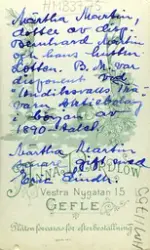 HM 8837:5
Märtha Martin,
dotter av disp.
Bernhard Martin
och hans hustru
Lotten. B. M. var
disponent vid
Konditsvalls Trä-
varu Aktiebolag
i början av
1890-talet.
Märtha Martin
senare gift med
Erik Lindh.
ANNA
Vestra Nygatan 15
GEFLE
Plåten förvaras för efterbeställning